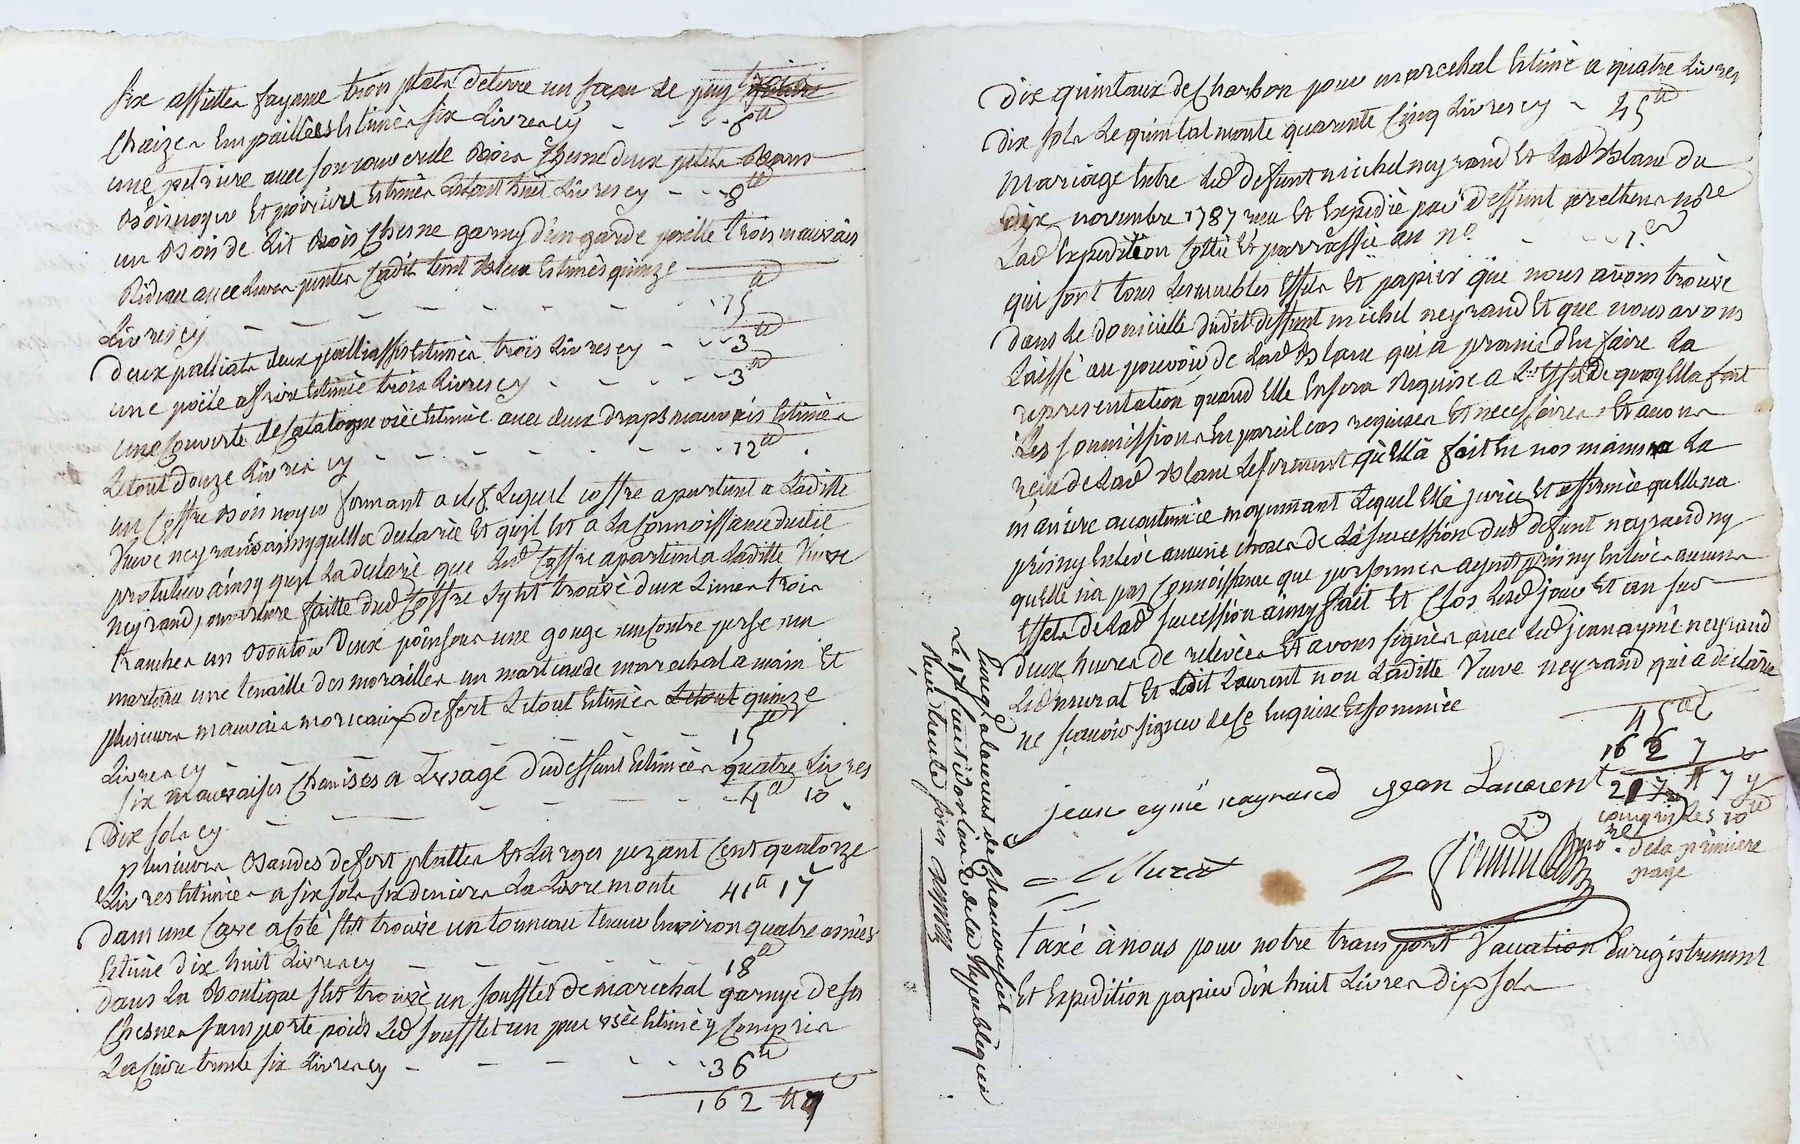 six assiettes fayance trois plats de terre un seau de puy
chaizes empaillées estimés six Livres cy - - - 6ᵗᵗ
une petrière avec son couvercle bois chesne deux petits bans
bois noyer et estimés Letout huit Livres cy - - - 8ᵗᵗ
un bois de Lit bois chesne garny d'un garde paille trois mauvais
Rideau avec Leurs pentes Cadit teint bleu estimés quinze
Livres cy - - - - - - 15ᵗᵗ
deux palliats deux estimés trois Livres cy - - - 3ᵗᵗ
une poële a frire estimée trois Livres cy - - - 3ᵗᵗ
une Couverte de Catalogne avec deux draps mauvais estimés
Letout douze Livres cy - - - - - - 12ᵗᵗ
un Coffre bois noyer fermant a clef Lequel coffre apartient a Laditte
Veuve neyrand ainsy quella declaré Et quil Est a La Connoissance dudit
ainsy quil La declaré que Led Coffre apartient a Laditte Veuve
neyrand, ouverture faitte dud Coffre sy Est trouvé deux Limes trois
tranches un boutoir deux poinsons une gouge un contre perse un
marteau une tenaille des morailles un marteau de marechal a main Et
plusieurs mauvais morceaux de fert Letout Estimés Letout quinze
Livres cy - - - - - 15ᵗᵗ
six mauvaises Chemises a Lusage dudeffunt Estimées quatre Livres
Dix sols cy - - - - - 4ᵗᵗ 10
plusieurs bandes de fert plattes Et Larges pezant Cent quatorze
Livres Estimées a six sols six deniers La Livre monte 41ᵗᵗ 17
dans une Cave a Coté sest trouvé un tonneau tenant Environ quatre asnées
Estimé dix huit Livres cy - - - - - 18ᵗᵗ
dans La boutique sest trouvé un soufflet de marechal garnye de ses
Chesnes sans porte poids Led soufflet un peu usée Estimé y Compris
trente six Livres cy - - - - 36ᵗᵗ
162ᵗᵗ 7
Dix quintaux de Charbon pour marechal Estimé a quatre Livres
dix sols Le quintal monte quarente Cinq Livres cy - 45ᵗᵗ
Mariage Entre Led deffunt michel neyrand Et Lad blanc du
dix novembre 1787 reçu Et Expedié par deffunt nʳᵉ
Lad Expedition Cottée Et parraffée au nº - - - 1ᵉʳ
qui sont tous Les meubles Effets Et papier que nous avons trouvé
dans Le domicille dudit deffunt michel neyrand Et que nous avons
Laissé au pouvoir de Lad blanc qui a promis d'En faire La
representation quand elle En sera requise a Leffet de quoy Ella fait
Les soumissions En pareil cas requises Et necessaires, Et avons
reçu de Lad blanc Le serment quella fait En nos mains La
maniere accoutumée moyennant Lequel Ella jurée Et affirmée quelle na
pris ny Enlevé aucune choses de La succession dud deffunt neyrand ny
quelle na pas Connoissance que personne ayent pris ny Enlevés aucuns
Effets de Lad succession ainsy fait Et Clos Lesd jour Et an sus
deux heures de relevées Et avons signés avec Led jean aymé neyrand
Led murat Et Ledit Laurent non Laditte Veuve neyrand qui a déclarée
ne sçavoir signer de Ce Enquise Et sommée
45ᵗᵗ
162 7
207ᵗᵗ 7
compris Les 10ᵗᵗ
de la première
page
jean eymé naygrand jean Laurent
Murat
nʳᵉ
Taxé à nous pour notre transport Vacation Enregistrement
Et Expedition papier dix huit Livres dix sols
Enreg. a de
Le 17 L'an 2 de la République
Reçu trente sous